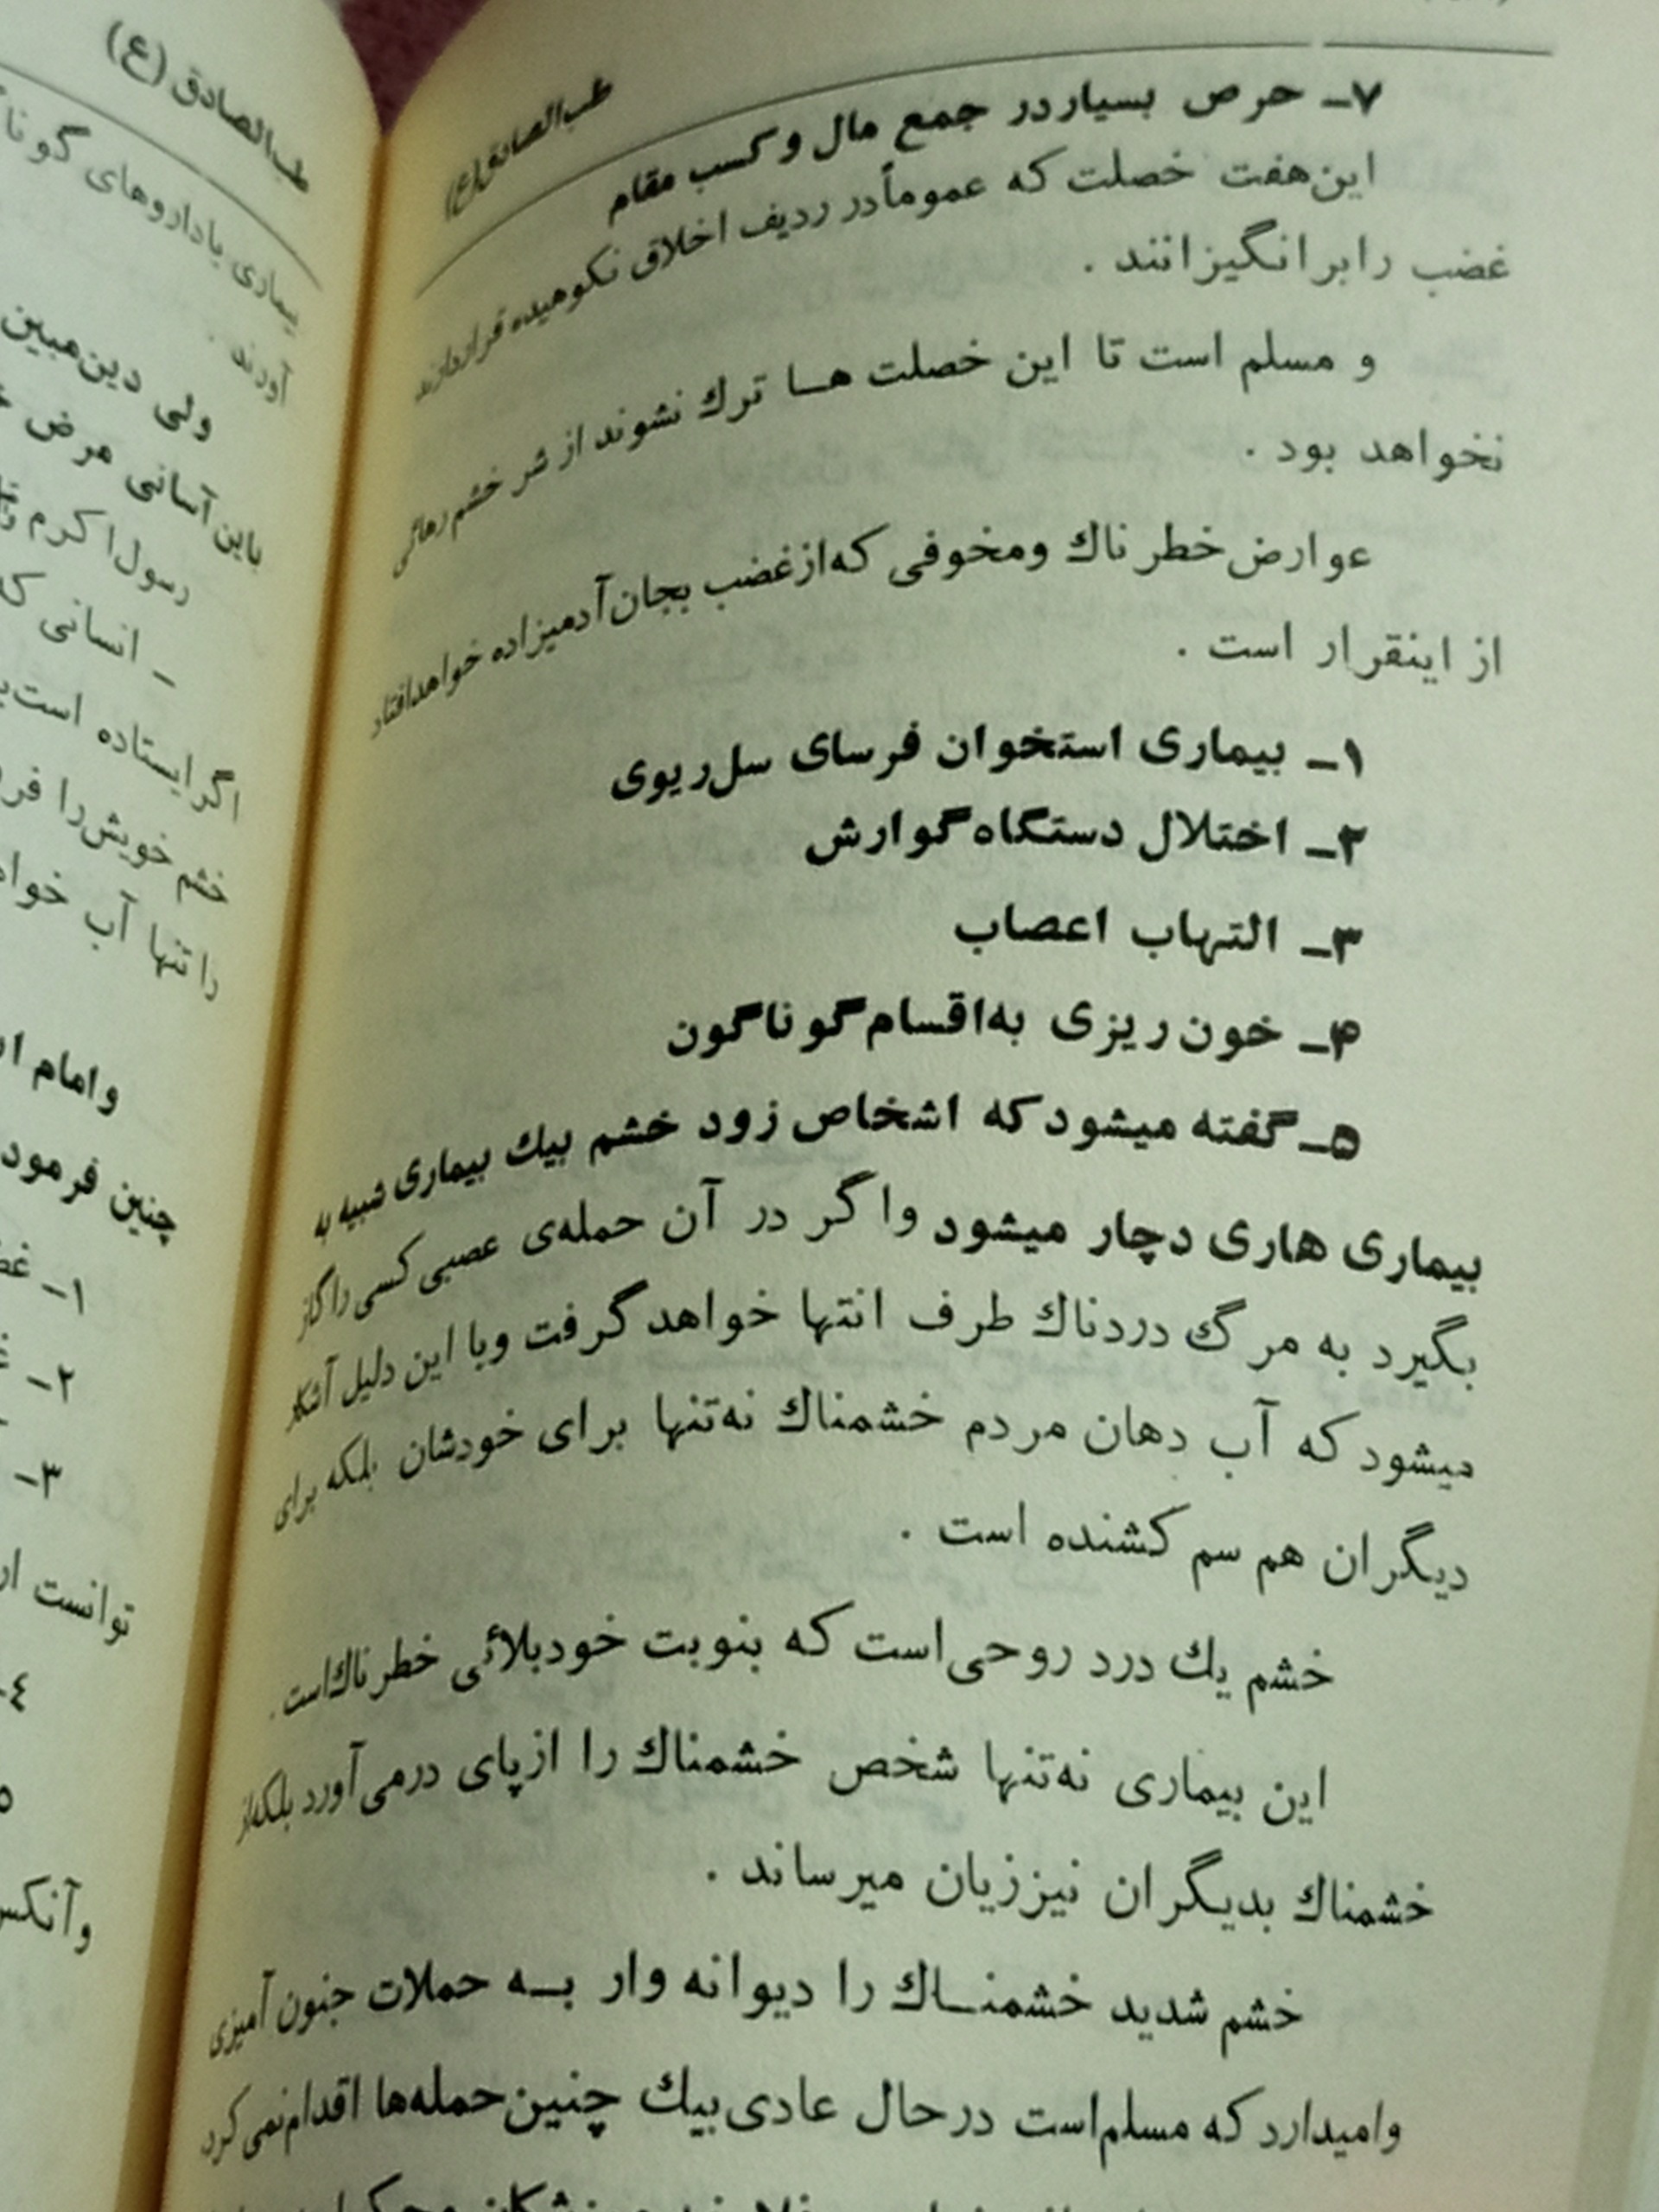 طب‌الصادق(ع)
۷ـ حرص بسیار در جمع مال و کسب مقام
این هفت خصلت که عموماً در ردیف اخلاق نکوهیده قرار دارند
غضب را برانگیزانند .
و مسلم است تا این خصلت هــا ترك نشوند از شر خشم رهائی
نخواهد بود .
عوارض خطرناك و مخوفی که از غضب بجان آدمیزاده خواهد افتاد
از اینقرار است .
۱ـ بیماری استخوان فرسای سل ریوی
۲ـ اختلال دستگاه گوارش
۳ـ التهاب اعصاب
۴ـ خون ریزی به اقسام گوناگون
۵ـ گفته میشود که اشخاص زود خشم بیك بیماری شبیه به
بیماری هاری دچار میشود واگر در آن حمله‌ی عصبی کسی را گاز
بگیرد به مرگ دردناك طرف انتها خواهد گرفت وبا این دلیل آشکار
میشود که آب دهان مردم خشمناك نه‌تنها برای خودشان بلکه برای
دیگران هم سم کشنده است .
خشم یك درد روحی است که بنوبت خود بلائی خطرناك است .
این بیماری نه‌تنها شخص خشمناك را از پای درمی‌آورد بلکه از
خشمناك بدیگران نیز زیان میرساند .
خشم شدید خشمنــاك را دیوانه وار بــه حملات جنون آمیزی
وامیدارد که مسلم است در حال عادی بیك چنین حمله‌ها اقدام نمی‌کرد
طب‌الصادق(ع)
بیماری یا داروهای
آورند .
ولی دین مبین
باین آسانی مرض
رسول اکرم
ـ انسانی
اگر ایستاده است
خشم خویش را
را تنها آب
وامام
چنین فرمود
۱ـ
۲ـ
۳ـ
توانست
٤ـ
٥
وآنکس